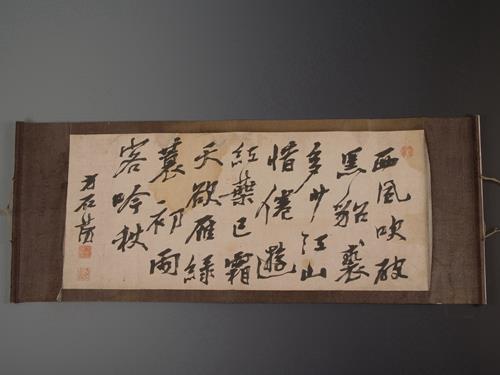 西風吹破
黑貂裘
多少江山
惜倦遊
紅葉已霜
天欲雁緑
蓑初雨
客吟秋